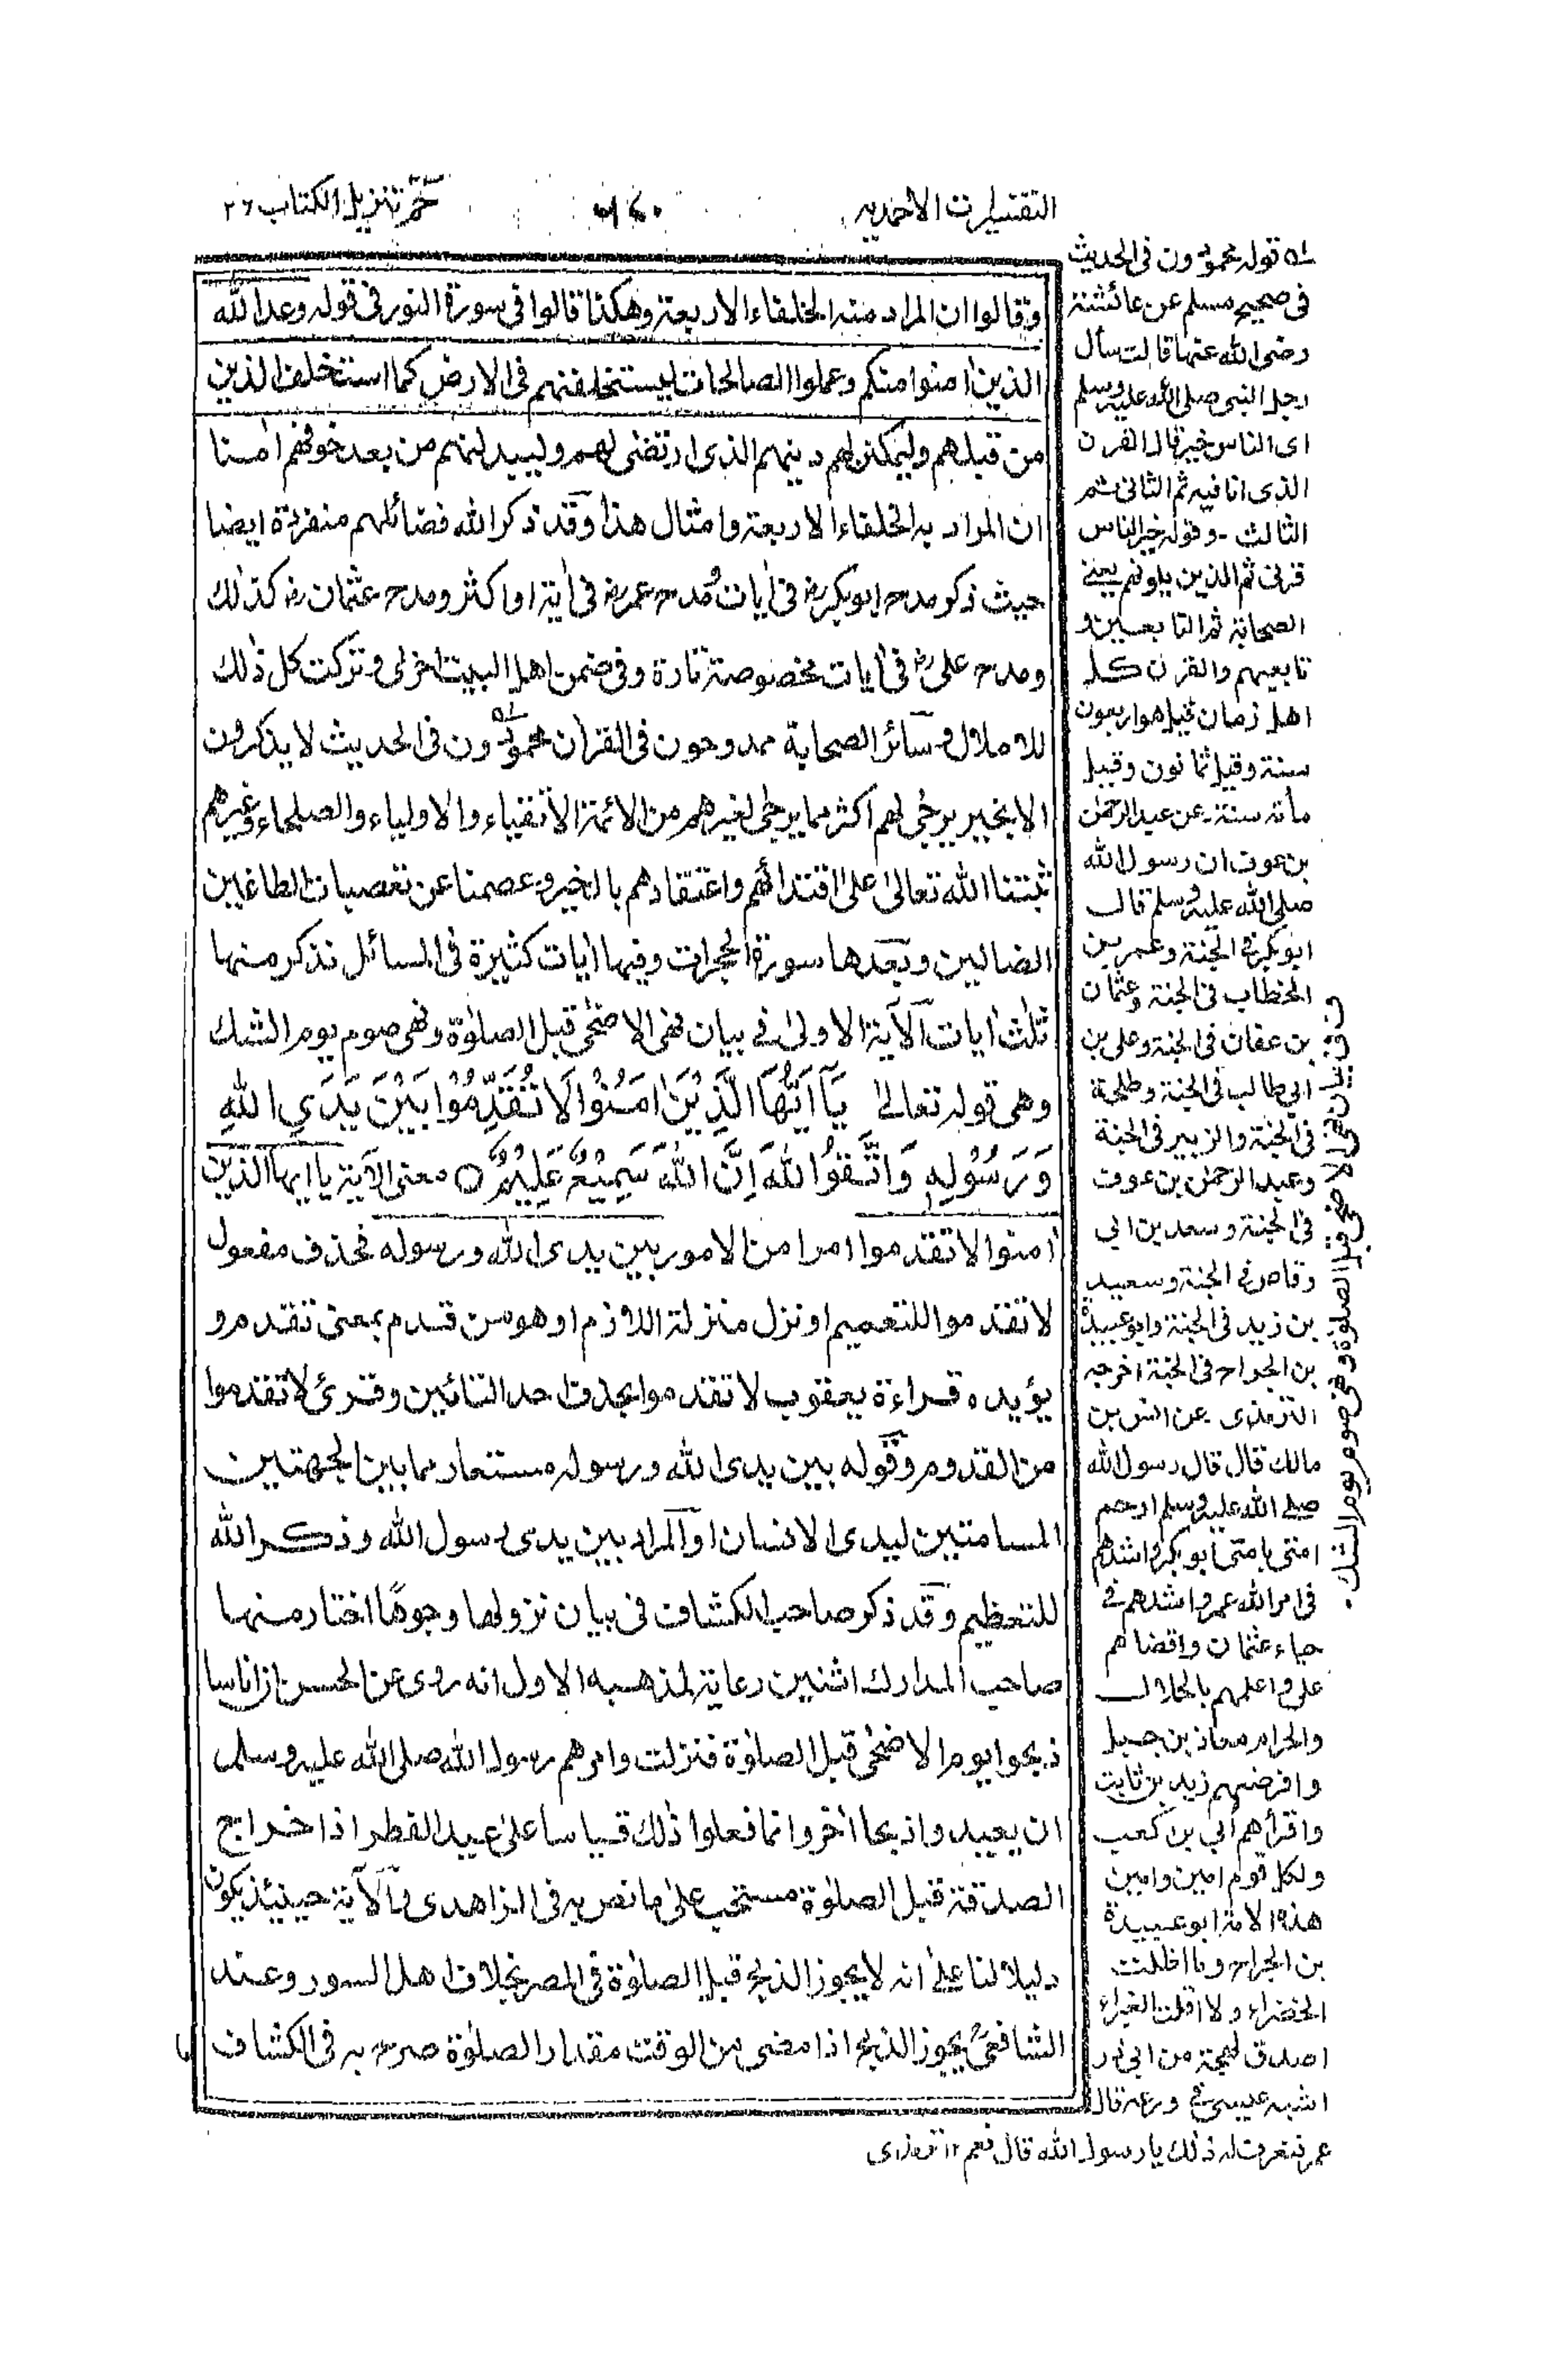 التفسيرات الاحمديه
حم تنزيل الكتاب ٢٦
وقالوا ان المراد منه الخلفاء الاربعة وهكذا قالوا فى سورة النور فى قوله وعد الله
الذين امنوا منكم وعملوا الصالحات ليستخلفنهم فى الارض كما استخلف الذين
من قبلهم وليمكنن لهم دينهم الذى ارتضى لهم وليبدلنهم من بعد خوفهم امنا
ان المراد به الخلفاء الاربعة وامثال هذا وقد ذكر الله فضائلهم منفردة ايضا
حيث ذكر مدح ابوبكر رض فى أيات ومدح عمر رض فى أية او اكثر ومدح عثمان رض كذلك
ومدح على رض فى أيات مخصوصة تارة وفى ضمن اهل البيت اخرى وتركت كل ذلك
للاملال وسائر الصحابة ممدوحون فى القران محمودون فى الحديث لا يذكرون
الا بخير يرجى لهم اكثر مما يرجى لغيرهم من الائمة الاتقياء والاولياء والصلحاء وغيرهم
ثبتنا الله تعالى على اقتدائهم واعتقادهم بالخير وعصمنا عن تعصبات الطاغين
الضالين وبعدها سورة الحجرات وفيها أيات كثيرة فى المسائل نذكر منها
ثلث أيات الآية الاولى فى بيان نهى الاضحى قبل الصلوة ونهى صوم يوم الشك
وهى قوله تعالى يَآ اَيُّهَا الَّذِيْنَ اٰمَنُوْا لَا تُقَدِّمُوْا بَيْنَ يَدَيِ اللهِ
وَرَسُوْلِهٖ وَاتَّقُوا اللهَ اِنَّ اللهَ سَمِيْعٌ عَلِيْمٌ ○ معنى الآية يا ايها الذين
أمنوا لا تقدموا امرا من الامور بين يدى الله ورسوله فحذف مفعول
لا تقدموا للتعميم او نزل منزلة اللازم او هو من قدم بمعنى تقدم و
يؤيده قراءة يعقوب لا تقدموا بحذف احد التائين وقرئ لا تقدموا
من القدوم وقوله بين يدى الله ورسوله مستعار مما بين الجهتين
المسامتين ليدى الانسان او المراد بين يدى رسول الله وذكر الله
للتعظيم وقد ذكر صاحب الكشاف فى بيان نزولها وجوها اختار منها
صاحب المدارك اثنين رعاية لمذهبه الاول انه روى عن الحسن ان اناسا
ذبحوا يوم الاضحى قبل الصلوة فنزلت وامرهم رسول الله صلى الله عليه وسلم
ان يعيدوا ذبحا اخر وانما فعلوا ذلك قياسا على عيد الفطر اذا خراج
الصدقة قبل الصلوة مستحب على ما نص به فى الزاهدى فالآية حينئذ يكون
دليلا لنا على انه لا يجوز الذبح قبل الصلوة فى المصر بخلاف اهل السور وعند
الشافعى يجوز الذبح اذا مضى من الوقت مقدار الصلوة صرح به فى الكشاف
له قوله محمودون فى الحديث
فى صحيح مسلم عن عائشة
رضى الله عنها قالت سأل
رجل النبى صلى الله عليه وسلم
اى الناس خير قال القرن
الذى انا فيه ثم الثانى ثم
الثالث - وقوله خير الناس
قرنى ثم الذين يلونهم يعنى
الصحابة ثم التابعين و
تابعيهم والقرن كل
اهل زمان قيل هو اربعون
سنة وقيل ثمانون وقيل
مأته سنة - عن عبد الرحمن
بن عوف ان رسول الله
صلى الله عليه وسلم قال
ابو بكر فى الجنة وعمر بن
الخطاب فى الجنة وعثمان
بن عفان فى الجنة وعلى بن
ابى طالب فى الجنة وطلحة
فى الجنة والزبير فى الجنة
وعبد الرحمن بن عوف
فى الجنة وسعد بن ابى
وقاص فى الجنة وسعيد
بن زيد فى الجنة وابو عبيدة
بن الجراح فى الجنة اخرجه
الترمذى عن انس بن
مالك قال قال رسول الله
صلى الله عليه وسلم ارحم
امتى بامتى ابو بكر واشدهم
فى امر الله عمر واشدهم فى
حياء عثمان واقضاهم
على واعلمهم بالحلال
والحرام معاذ بن جبل
وافرضهم زيد بن ثابت
واقرأهم أبي بن كعب
ولكل قوم امين وامين
هذه الامة ابو عبيدة
بن الجراح وما اظلت
الخضراء ولا اقلت الغبراء
اصدق لهجة من ابى ذر
اشبه عيسى فى ورعه قال
عمر فنعرف له ذلك يا رسول الله قال نعم ١٢ ترمذى
ف فى بيان نهى الاضحى قبل الصلوة ونهى صوم يوم الشك